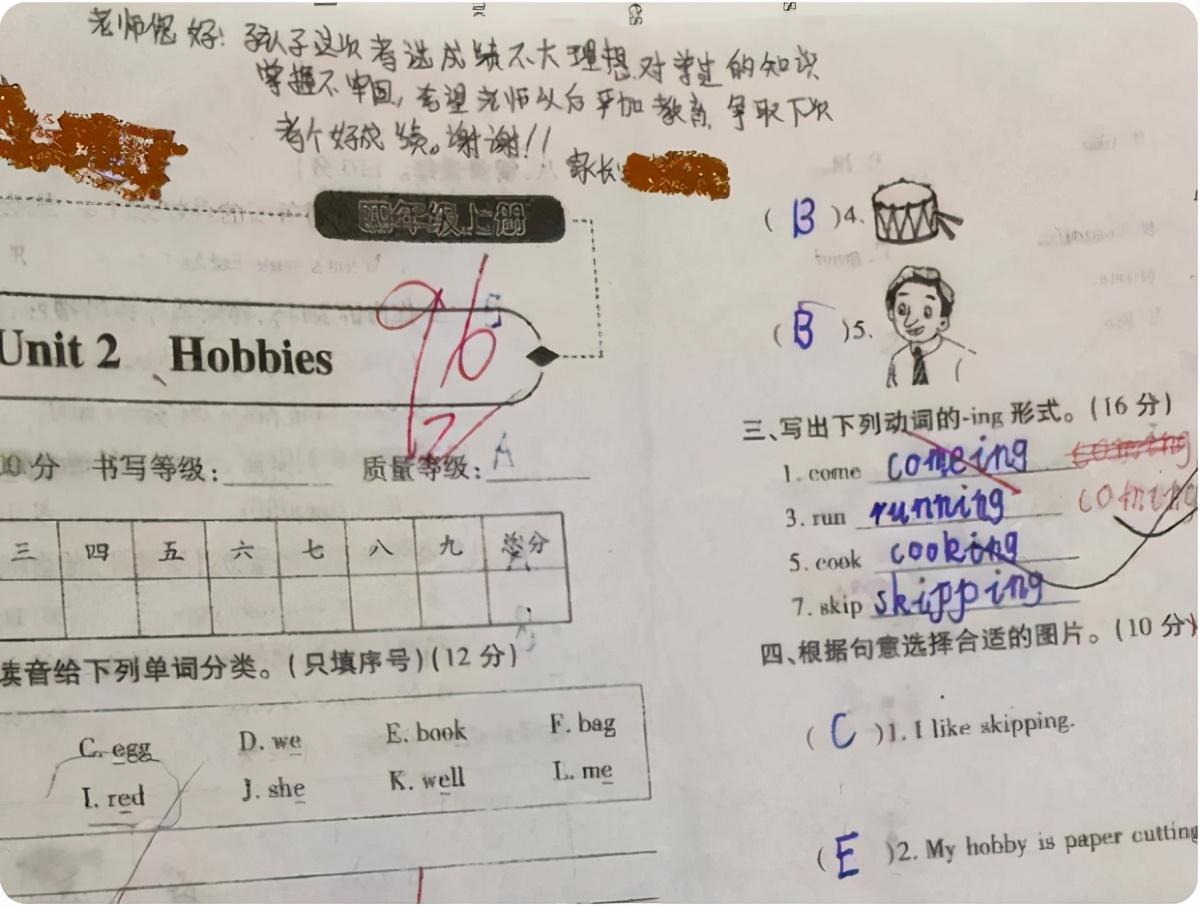 老师您好!孩子这次考试成绩不大理想,对学生的知识
掌握不牢固,希望老师以后严加教育,争取下次
考个好成绩。谢谢!!
家长:
四年级上册
96
Unit 2 Hobbies
0分 书写等级: 质量等级: A
三 四 五 六 七 八 九 总分
读音给下列单词分类。(只填序号)(12分)
C. egg D. we E. book F. bag
I. red J. she K. well L. me
( B )4.
( B )5.
三、写出下列动词的-ing 形式。(16分)
1. come comeing coming
coming
3. run running
5. cook cooking
7. skip skipping
四、根据句意选择合适的图片。(10分)
( C )1. I like skipping.
( E )2. My hobby is paper cutting